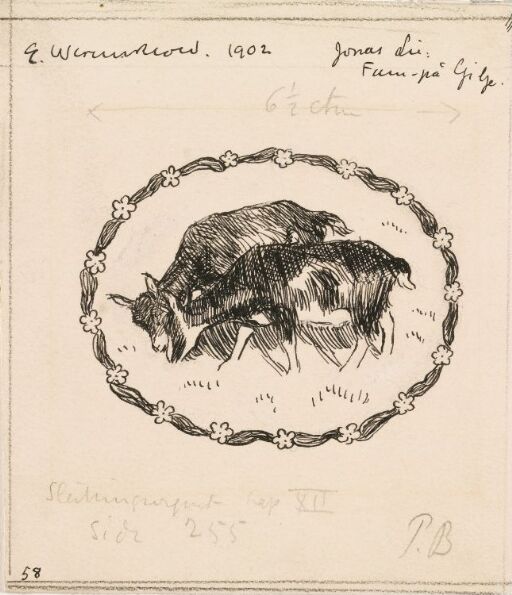 E. Werenskiold. 1902
Jonas Lie:
Fam-på Gilje.
6½ ctm
Kap XII
Side 255
P.B
58